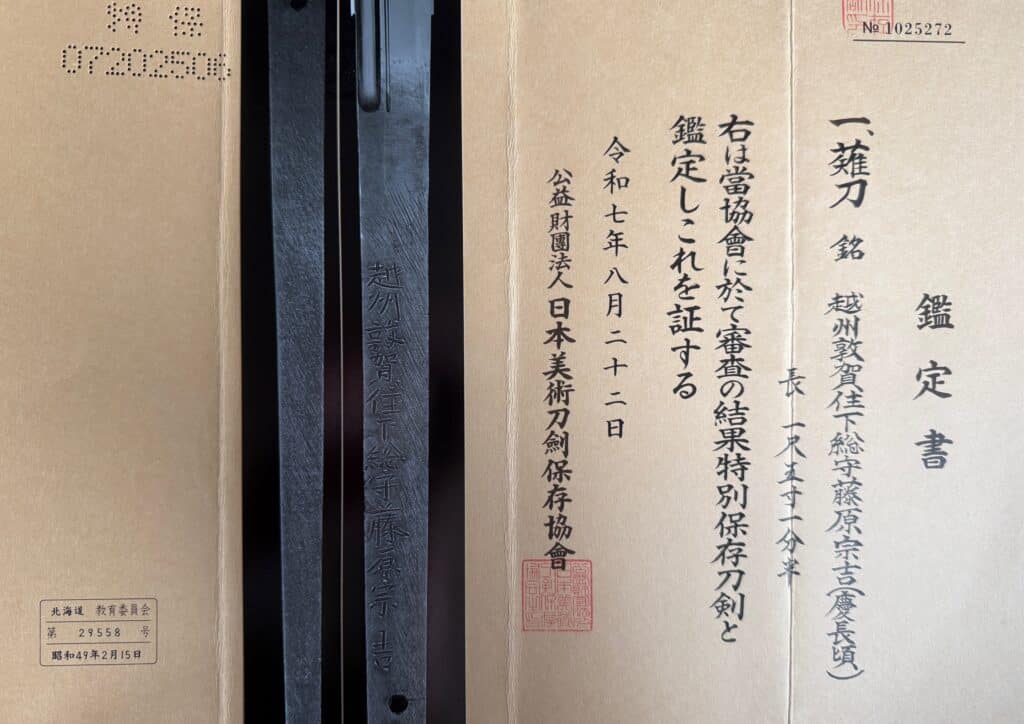 № 1025272
鑑定書
一、薙刀 銘 越州敦賀住下総守藤原宗吉(慶長頃)
長 一尺五寸一分半
右は當協會に於て審査の結果特別保存刀剣と
鑑定しこれを証する
令和七年八月二十二日
公益財團法人日本美術刀劍保存協會
越州敦賀住下総守藤原宗吉
特保
07202506
北海道 教育委員会
第 29558 号
昭和49年2月15日